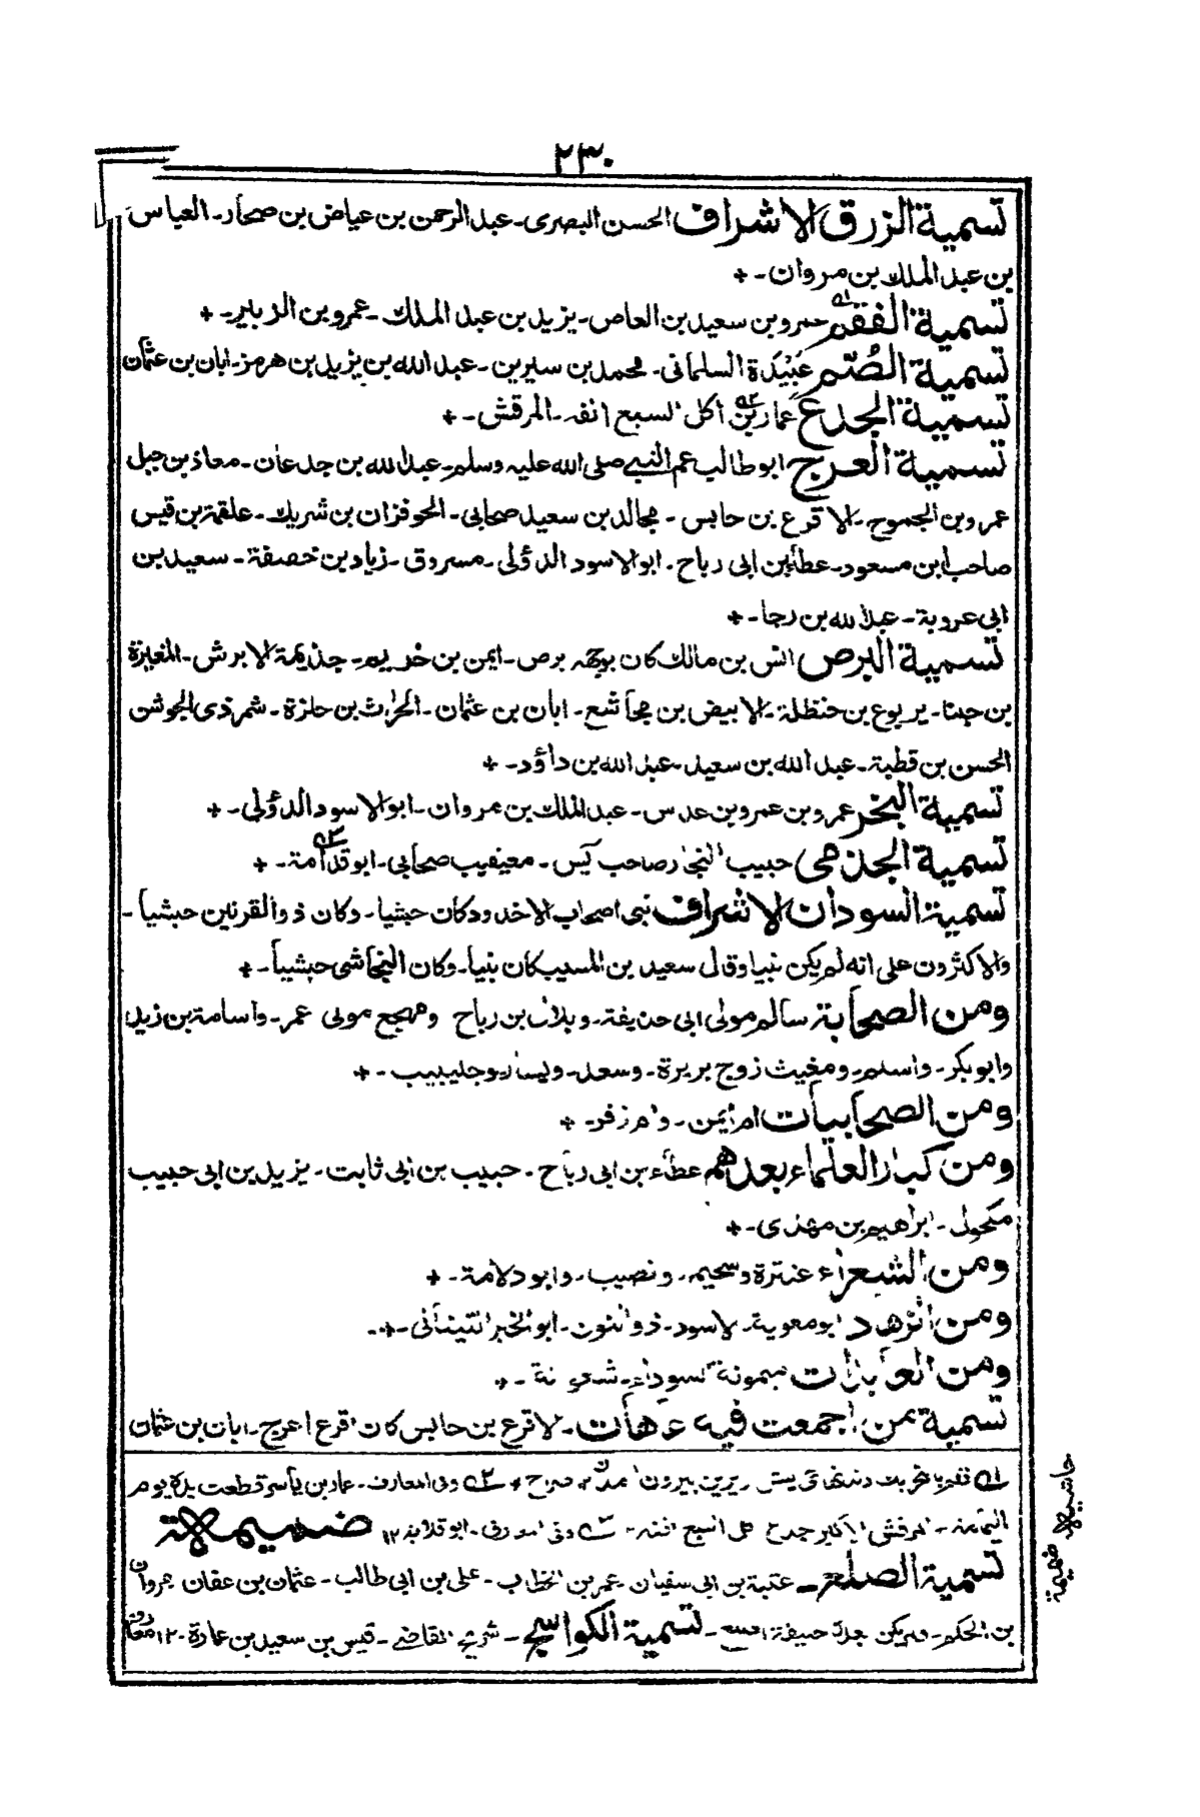 ٢٣٠
تسمية الزرق الاشراف الحسن البصرى۔ عبد الرحمن بن عياض بن صحار۔ العباس
بن عبد الملك بن مروان۔ +
تسمية الفقم عمرو بن سعيد بن العاص۔ يزيد بن عبد الملك۔ عمرو بن الزبير۔ +
تسمية الصُتم عَبِيْدَة السلمانى۔ محمد بن سيرين۔ عبد الله بن يزيد بن هرمز۔ ابان بن عثمان
تسمية الجدع عمار بن اكل السبع انفه۔ المرقش۔ +
تسمية العرج ابو طالب عم النبى صلى الله عليه وسلم۔ عبد الله بن جدعان۔ معاذ بن جبل
عمرو بن الجموح۔ الاقرع بن حابس۔ مجالد بن سعيد صحابى۔ الحوفزان بن شريك۔ علقمة بن قيس
صاحب ابن مسعود۔ عطاء بن ابى رباح۔ ابو الاسود الدؤلى۔ مسروق۔ زياد بن خصفة۔ سعيد بن
ابى عروبة۔ عبد الله بن رجا۔ +
تسمية البرص انس بن مالك كان بوجهه برص۔ ايمن بن خريم۔ جذيمة الابرش۔ المغيرة
بن حبنا۔ يربوع بن حنظلة۔ الابيض بن مجاشع۔ ابان بن عثمان۔ الحراث بن حلزة۔ شمر ذى الجوشن
الحسن بن قطبة۔ عبد الله بن سعيد۔ عبد الله بن داؤد۔ +
تسمية البخر عمرو بن عمرو بن عدس۔ عبد الملك بن مروان۔ ابو الاسود الدؤلى۔ +
تسمية الجذمى حبيب النجار صاحب يٰس۔ معيقيب صحابى۔ ابو قدامة۔ +
تسمية السودان الاشراف نبى اصحاب الاخدود كان حبشيا۔ وكان ذو القرنين حبشيا۔
والاكثرون على انه لم يكن نبيا وقال سعيد بن المسيب كان نبيا۔ وكان النجاشى حبشيا۔ +
ومن الصحابة سالم مولى ابى حذيفة۔ وبلال بن رباح ومهجع مولى عمر۔ واسامة بن زيد
وابو بكر۔ واسلم۔ ومغيث زوج بريرة۔ وسعد۔ ويسار وجليبيب۔ +
ومن الصحابيات ام ايمن۔ وام زفر۔ +
ومن كبار العلماء بعدهم عطاء بن ابى رباح۔ حبيب بن ابى ثابت۔ يزيد بن ابى حبيب
مكحول۔ ابراهيم بن مهدى۔ +
ومن الشعراء عنترة وسحيم۔ ونصيب۔ وابو دلامة۔ +
ومن الزهاد ابو معوية الاسود۔ ذو النون۔ ابو الخير التيناتى۔
ومن العابدات ميمونة السوداء۔ شعوانة۔
تسمية من اجمعت فيه عاهات۔ الاقرع بن حابس كان اقرع اعرج۔ ابان بن عثمان
وفى المعارف۔ عمار بن ياسر قطعت يده يوم
اليمامة۔ المرقش الاكبر جدع اكل السبع انفه ابو قلابة ١٢ ضميمة
تسمية الصلع۔ عتبة بن ابى سفيان۔ عمر بن الخطاب۔ على بن ابى طالب۔ عثمان بن عفان مروان
بن الحكم۔ ولم يكن بعده خليفة اصلع۔ تسمية الكواسج۔ شريح القاضى۔ قيس بن سعيد بن عبادة۔ ١٢ معارف
حاشيه ضميمة